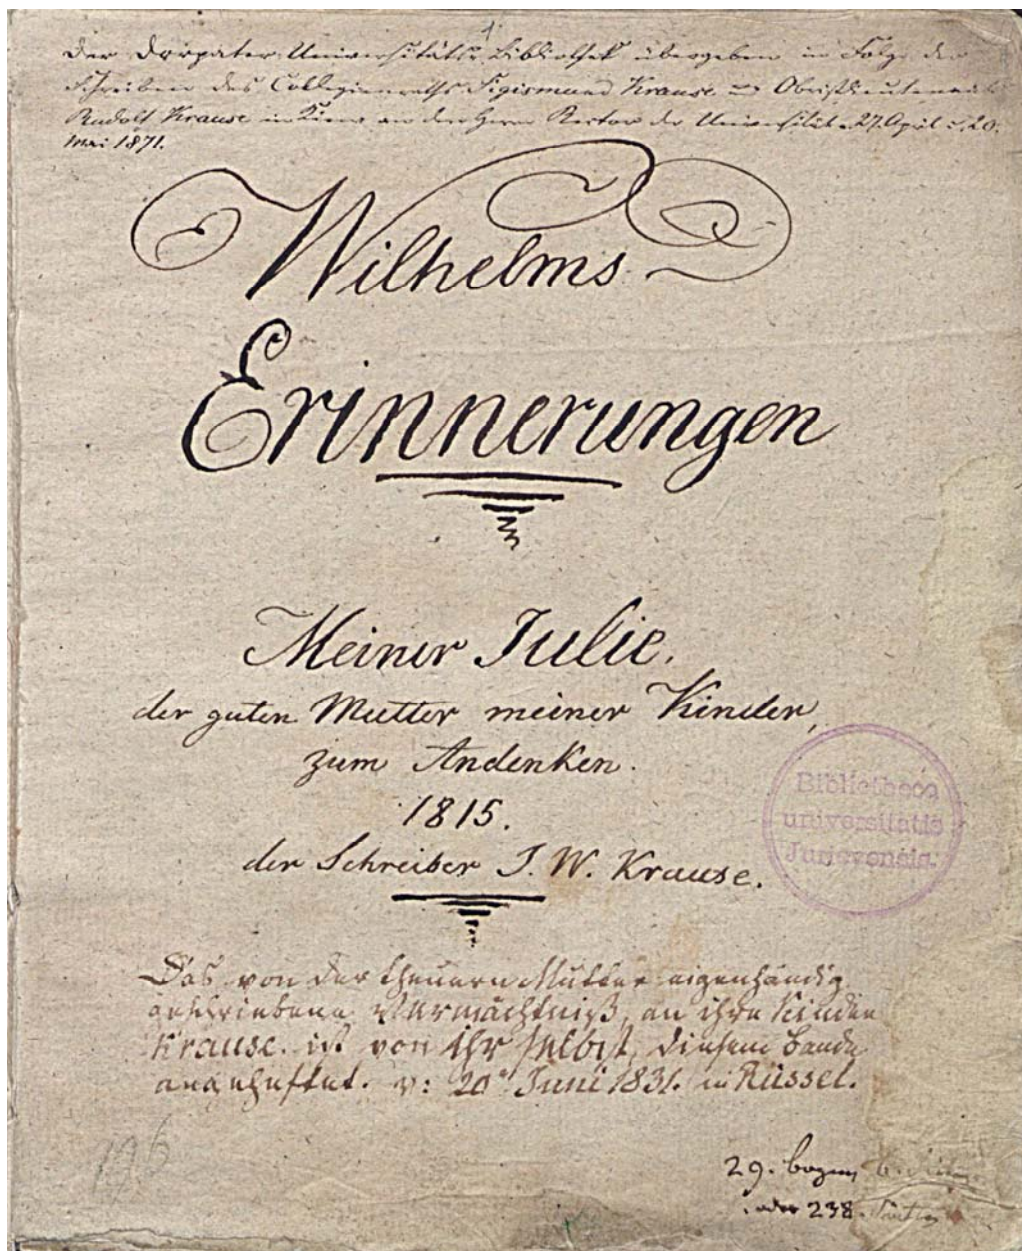 1.
Der Dorpater Universitäts Bibliothek übergeben in Folge der
Schreiben des Collegienraths Sigismund Krause und Obristlieutenants
Rudolf Krause in Kiew an den Herrn Rector der Universität v. 27 April u. 20.
Mai 1871.
Wilhelms
Erinnerungen
Meiner Julie,
der guten Mutter meiner Kinder,
zum Andenken.
1815.
der Schreiber J. W. Krause.
Bibliotheca
universitatis
Jurievensis.
Das von der theuern Mutter eigenhändig
geschriebene Vermächtniß, an ihre Kinder
Krause. ist von ihr selbst, diesem Bande
angeheftet. d: 20n Juni 1831. in Küssel.
196
29. bogen
oder 238. Seiten